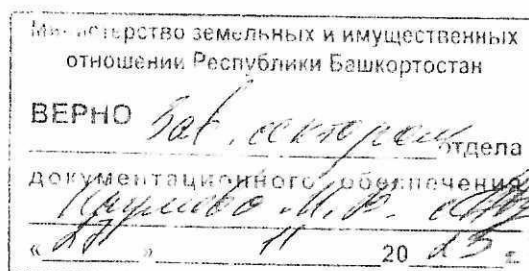 Министерство земельных и имущественных
отношений Республики Башкортостан
ВЕРНО Зав. сектором отдела
документационного обеспечения
М.В.
« 27 » 11 20 23 г.